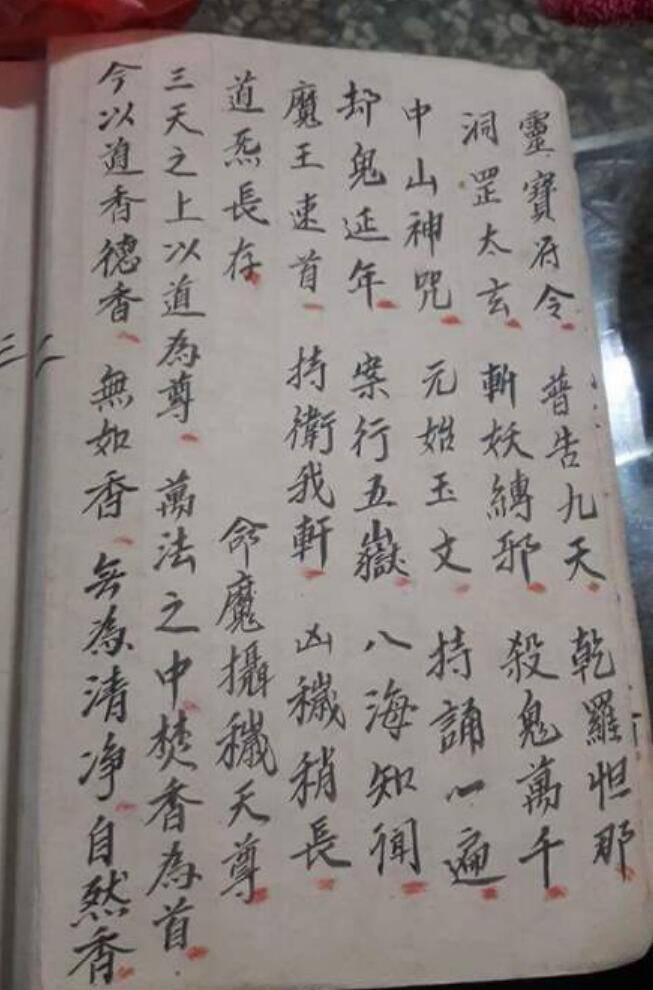 靈寶府令 普告九天 乾羅怛那
洞罡太玄 斬妖縛邪 殺鬼萬千
中山神咒 元始玉文 持誦一遍
却鬼延年 案行五嶽 八海知聞
魔王速首 持衛我軒 凶穢稍長
道炁長存 命魔攝穢天尊
三天之上以道為尊 萬法之中焚香為首
今以道香德香 無如香 無為清净自然香